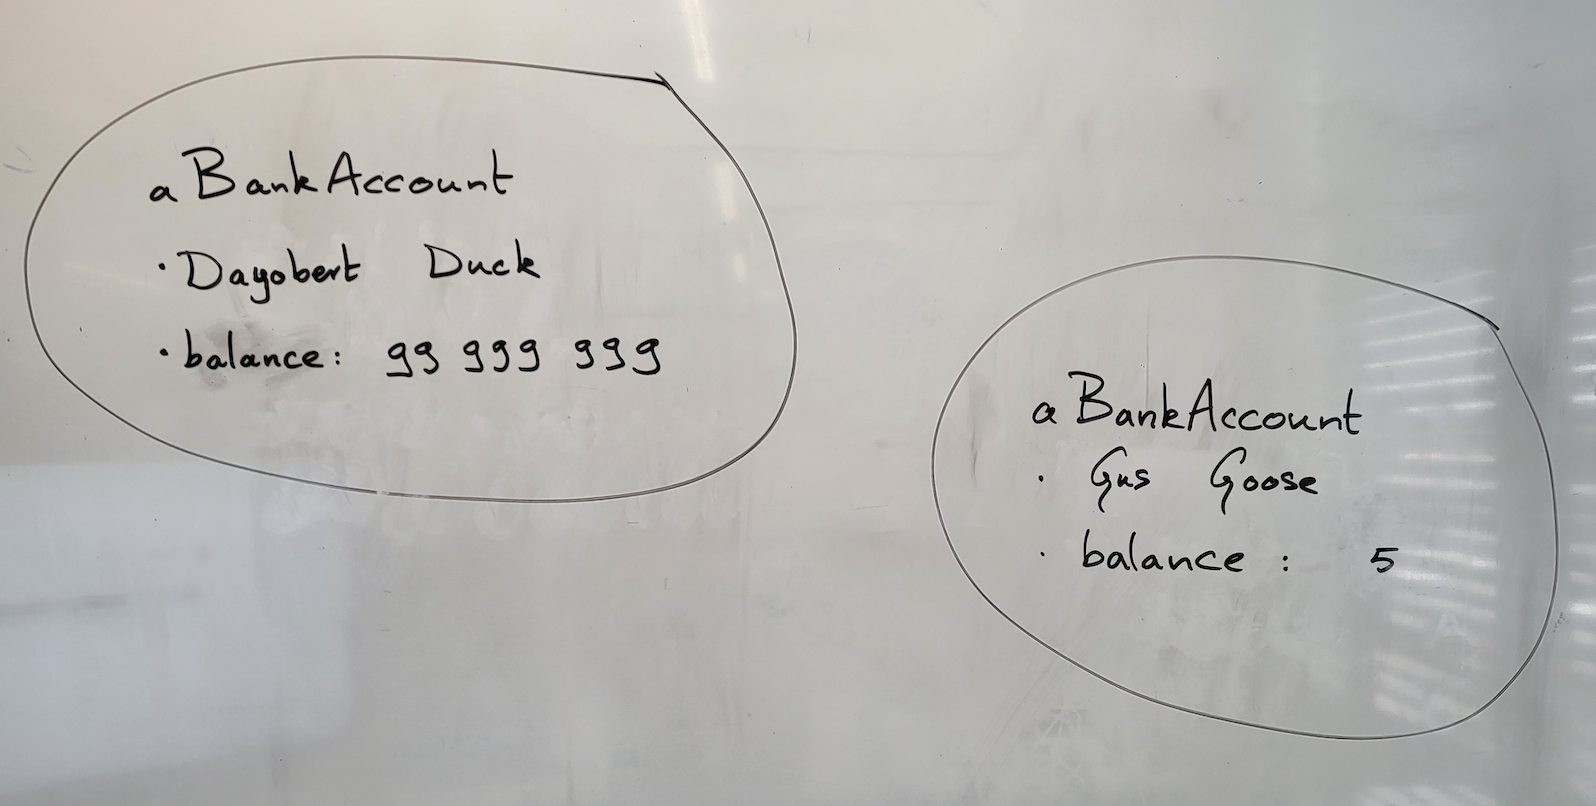 aBankAccount
· Dagobert Duck
· balance: 99 999 999
aBankAccount
· Gus Goose
· balance : 5